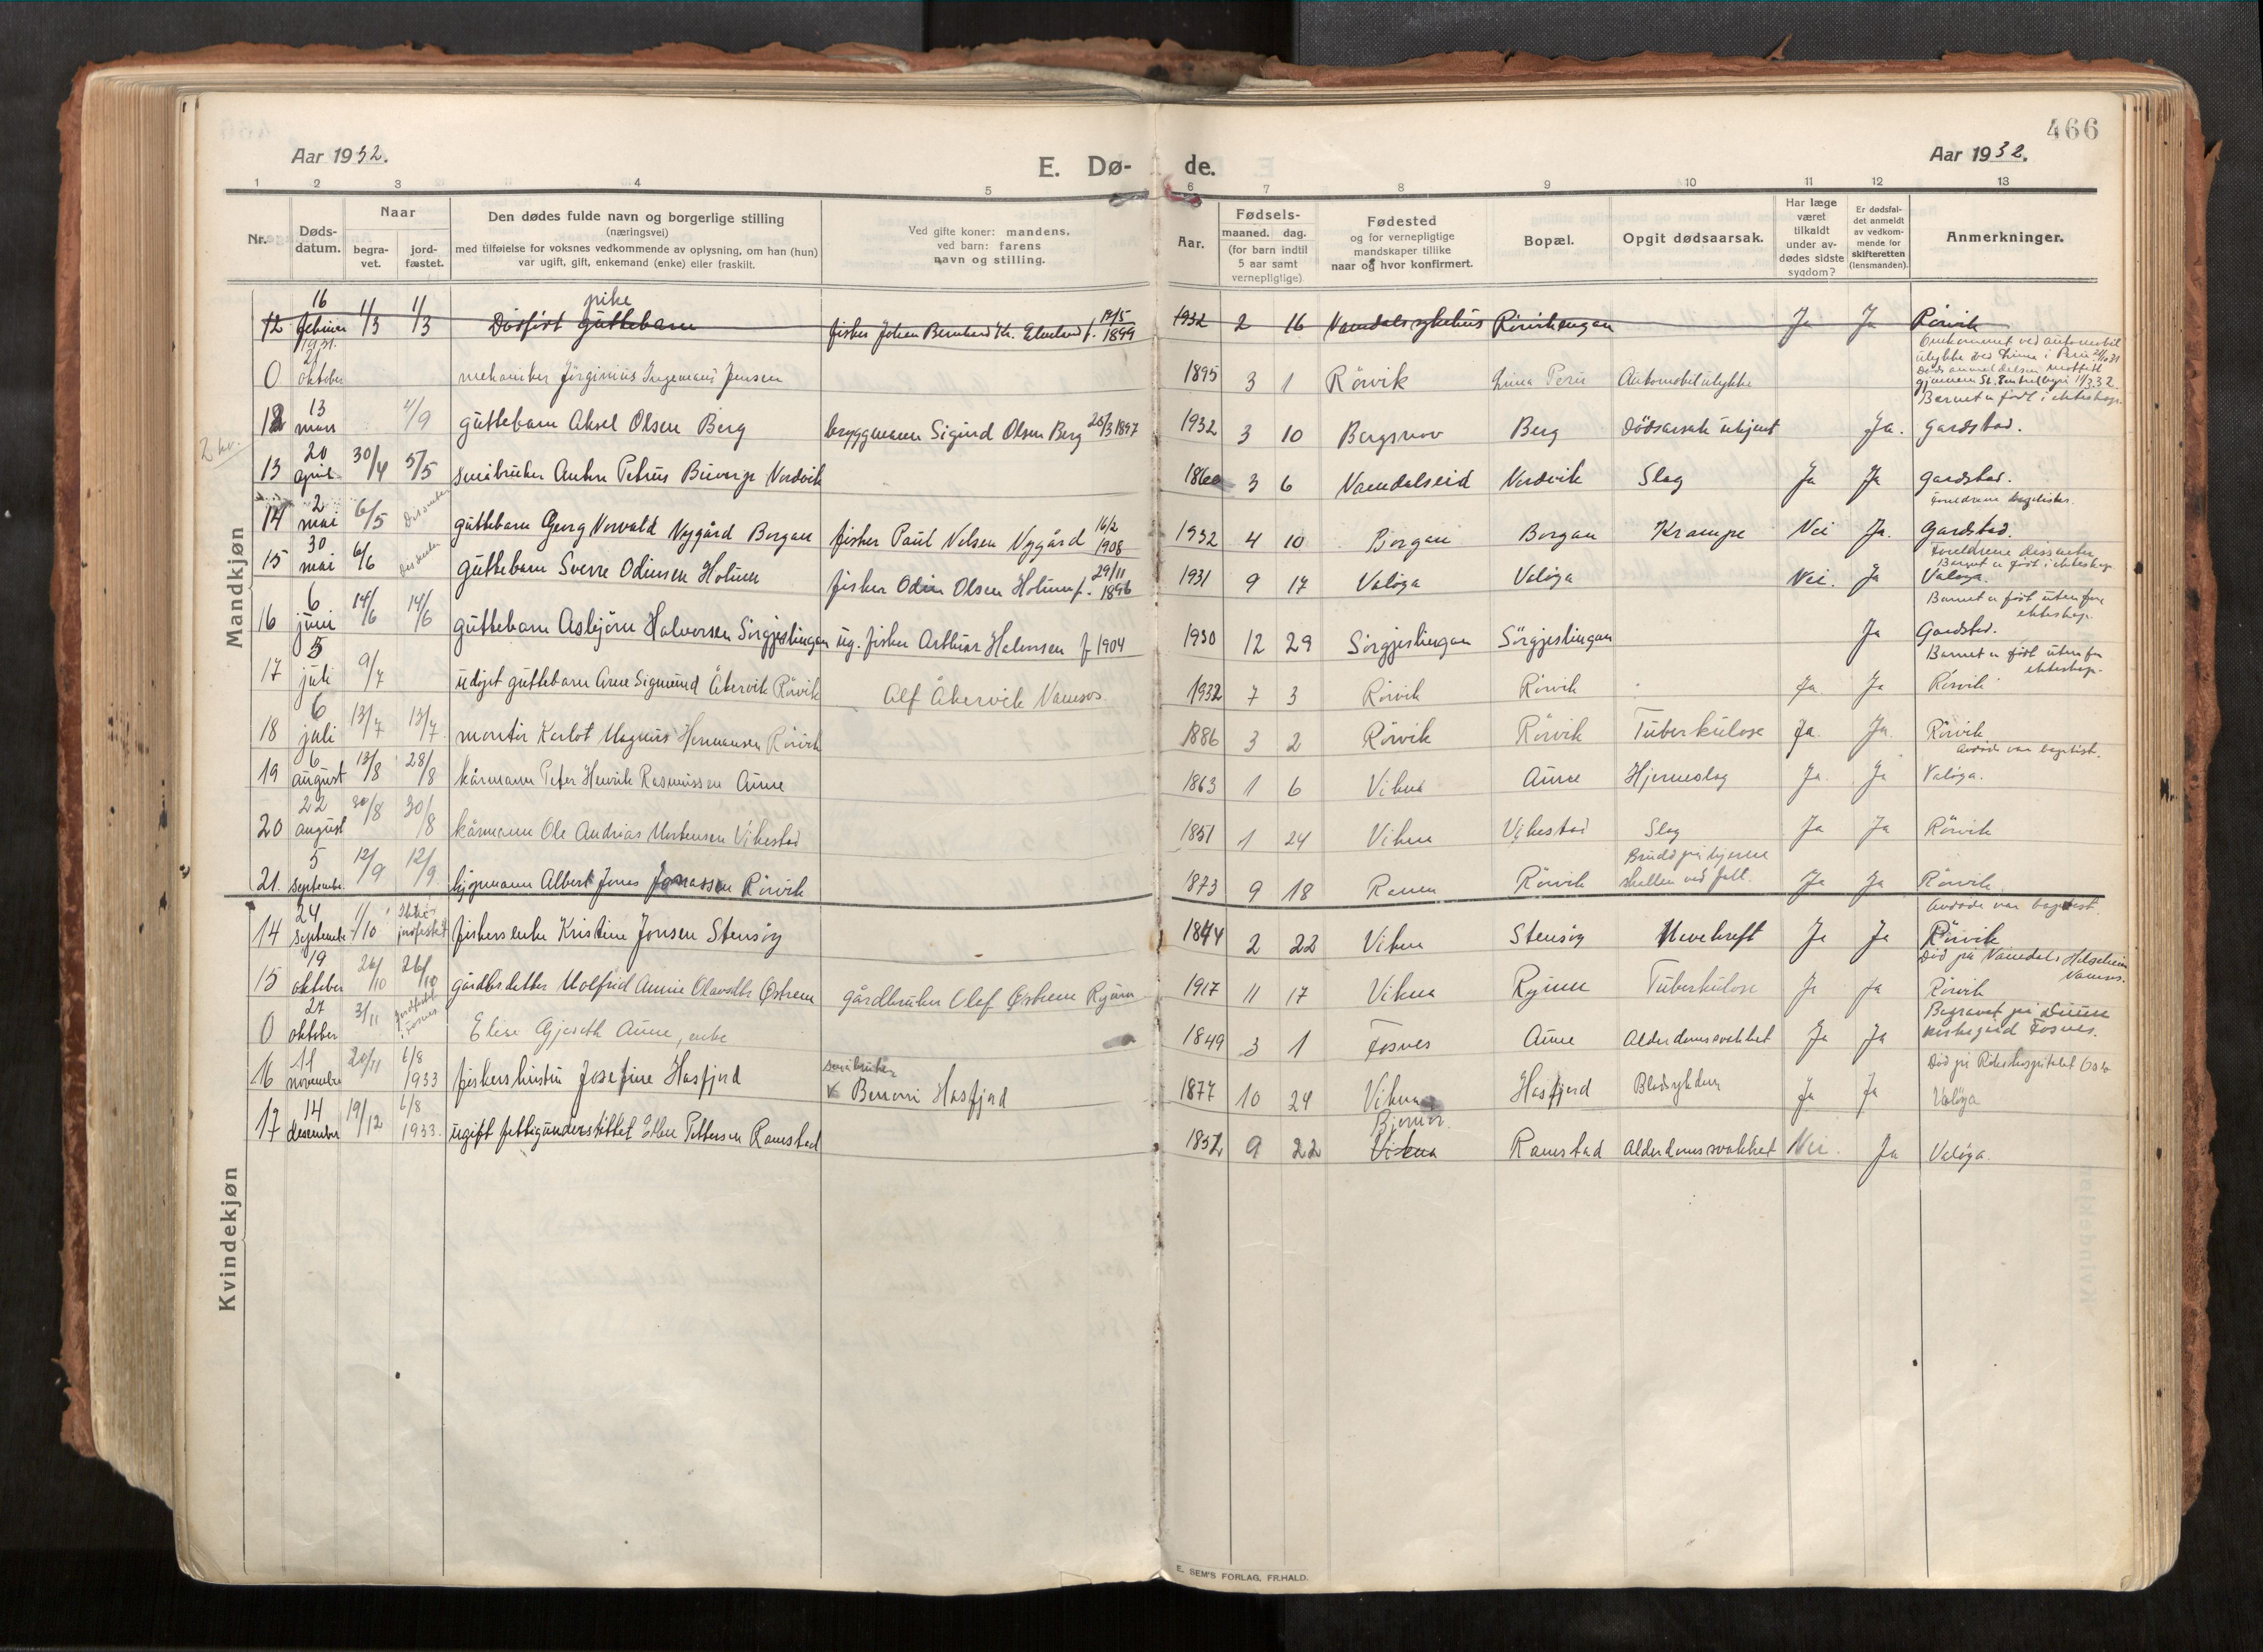 466
Aar 1932.
E. Dø-
de.
Aar 1932.
1 2 3 4 5 6 7 8 9 10 11 12 13
Nr.
Døds-
datum.
Naar
begra-
vet.
jord-
fæstet.
Den dødes fulde navn og borgerlige stilling
(næringsvei)
med tilføielse for voksnes vedkommende av oplysning, om han (hun)
var ugift, gift, enkemand (enke) eller fraskilt.
Ved gifte koner: mandens,
ved barn: farens
navn og stilling.
Aar.
Fødsels-
maaned. dag.
(for barn indtil
5 aar samt
vernepligtige)
Fødested
og for vernepligtige
mandskaper tillike
naar og hvor konfirmert.
Bopæl.
Opgit dødsaarsak.
Har læge
været
tilkaldt
under av-
dødes sidste
sygdom?
Er dødsfal-
det anmeldt
av vedkom-
mende for
skifteretten
(lensmanden).
Anmerkninger.
Mandkjøn
pike
12 16 februar 1/3 1/3 Dødfødt guttebarn fisker Johan Bernhard f. 1899 1932 2 16 Namdals sykehus Rörvikengan Ja Ja Rörvik
0 21 oktober 1931 mekaniker Jörginius Ingemans Jensen 1895 3 1 Rörvik Lima Peru Automobilulykke
Omkommet ved automobil
ulykke ved Lima i Peru
12 13 mars 4/9 guttebarn Aksel Olsen Berg bryggmann Sigurd Olsen Berg 1897 1932 3 10 Berg Dödsarsak ukjent Ja. Gardstad.
Barnet er født i ekteskap.
2 kv.
13 20 april 30/4 5/5 småbruker Anton Petrus Nordvik 1860 3 6 Namdalseid Nordvik Slag Ja Ja Gardstad.
14 2 mai 6/5 guttebarn Georg Norvald Nygård Borgan fisker Paul Nelsen Nygård 16/2 1908 1932 4 10 Borgan Borgan Krampe Nei Ja. Gardstad.
Foreldrene baptister.
15 30 mai 6/6 Dissenter guttebarn Sverre Odinsen Holmen fisker Odin Olsen Holmen f. 29/11 1896 1931 9 17 Valöya Valöya Nei. Ja Valöya.
Foreldrene dissenter
Barnet er født i ekteskap.
16 6 juni 14/6 14/6 guttebarn Asbjörn Halvorsen Sörgjeslingan ug. fisker Arthur Halvorsen f 1904 1930 12 29 Sörgjeslingan Sörgjeslingan Ja Gardstad.
Barnet er født utenfor
ekteskap.
17 5 juli 9/7 udöpt guttebarn Arne Sigmund Åkervik Rörvik Alf Åkervik Namsos 1932 7 3 Rörvik Rörvik Ja Ja Rörvik
Barnet er født utenfor
ekteskap.
18 6 juli 13/7 13/7 montör Karlot Magnus Hermansen Rörvik 1886 3 2 Rörvik Rörvik Tuberkulose Ja. Ja. Rörvik
19 6 august 13/8 28/8 kårmann Peter Henrik Rasmussen Aune 1863 1 6 Vikna Aune Hjerneslag Ja. Ja Valöya.
Avdöde var baptist.
20 22 august 30/8 30/8 kårmann Ole Andrias Mortensen Vikestad 1851 1 24 Vikna Vikestad Slag Ja Ja Rörvik
21. 5 september 12/9 12/9 kjöpmann Albert Jonas Jonassen Rörvik 1873 9 18 Ranen Rörvik Brudd på hjerne
skallen ved fall. Ja Ja Rörvik
Kvindekjøn
14 24 september 1/10 Ikke jordfestet fiskers enke Kristine Jonsen Stensöy 1844 2 22 Vikna Stensöy Mavekreft Ja Ja Rörvik
Avdöde var baptist.
15 19 oktober 26/10 26/10 gårdbr. datter Molfrid Annie Olavsdtr Östrem gårdbruker Olaf Östrem Ryum 1917 11 17 Vikna Ryum Tuberkulose Ja Ja Rörvik
Död på Namdals Helseheim
Namsos.
0 27 oktober 3/11 Elise Gjerseth Aune, enke 1849 3 1 Fosnes Aune Alderdomssvakhet Ja Ja
Begravet på
kirkegård Fosnes.
16 11 november 20/11 6/8 1933 fiskers hustru Josefine Hasfjord småbruker Bernoni Hasfjord 1877 10 24 Vikna Hasfjord Blodsykdom Ja Ja Valöya
Död på Rikshospitalet Oslo
17 14 desember 19/12 6/8 1933. ugift fattigunderstöttet Ellen Pettersen Ramstad 1852 9 22 Bjørnör. Vikna Ramstad Alderdomssvakhet Nei. Ja Valöya.
E. SEM'S FORLAG, FR.HALD.